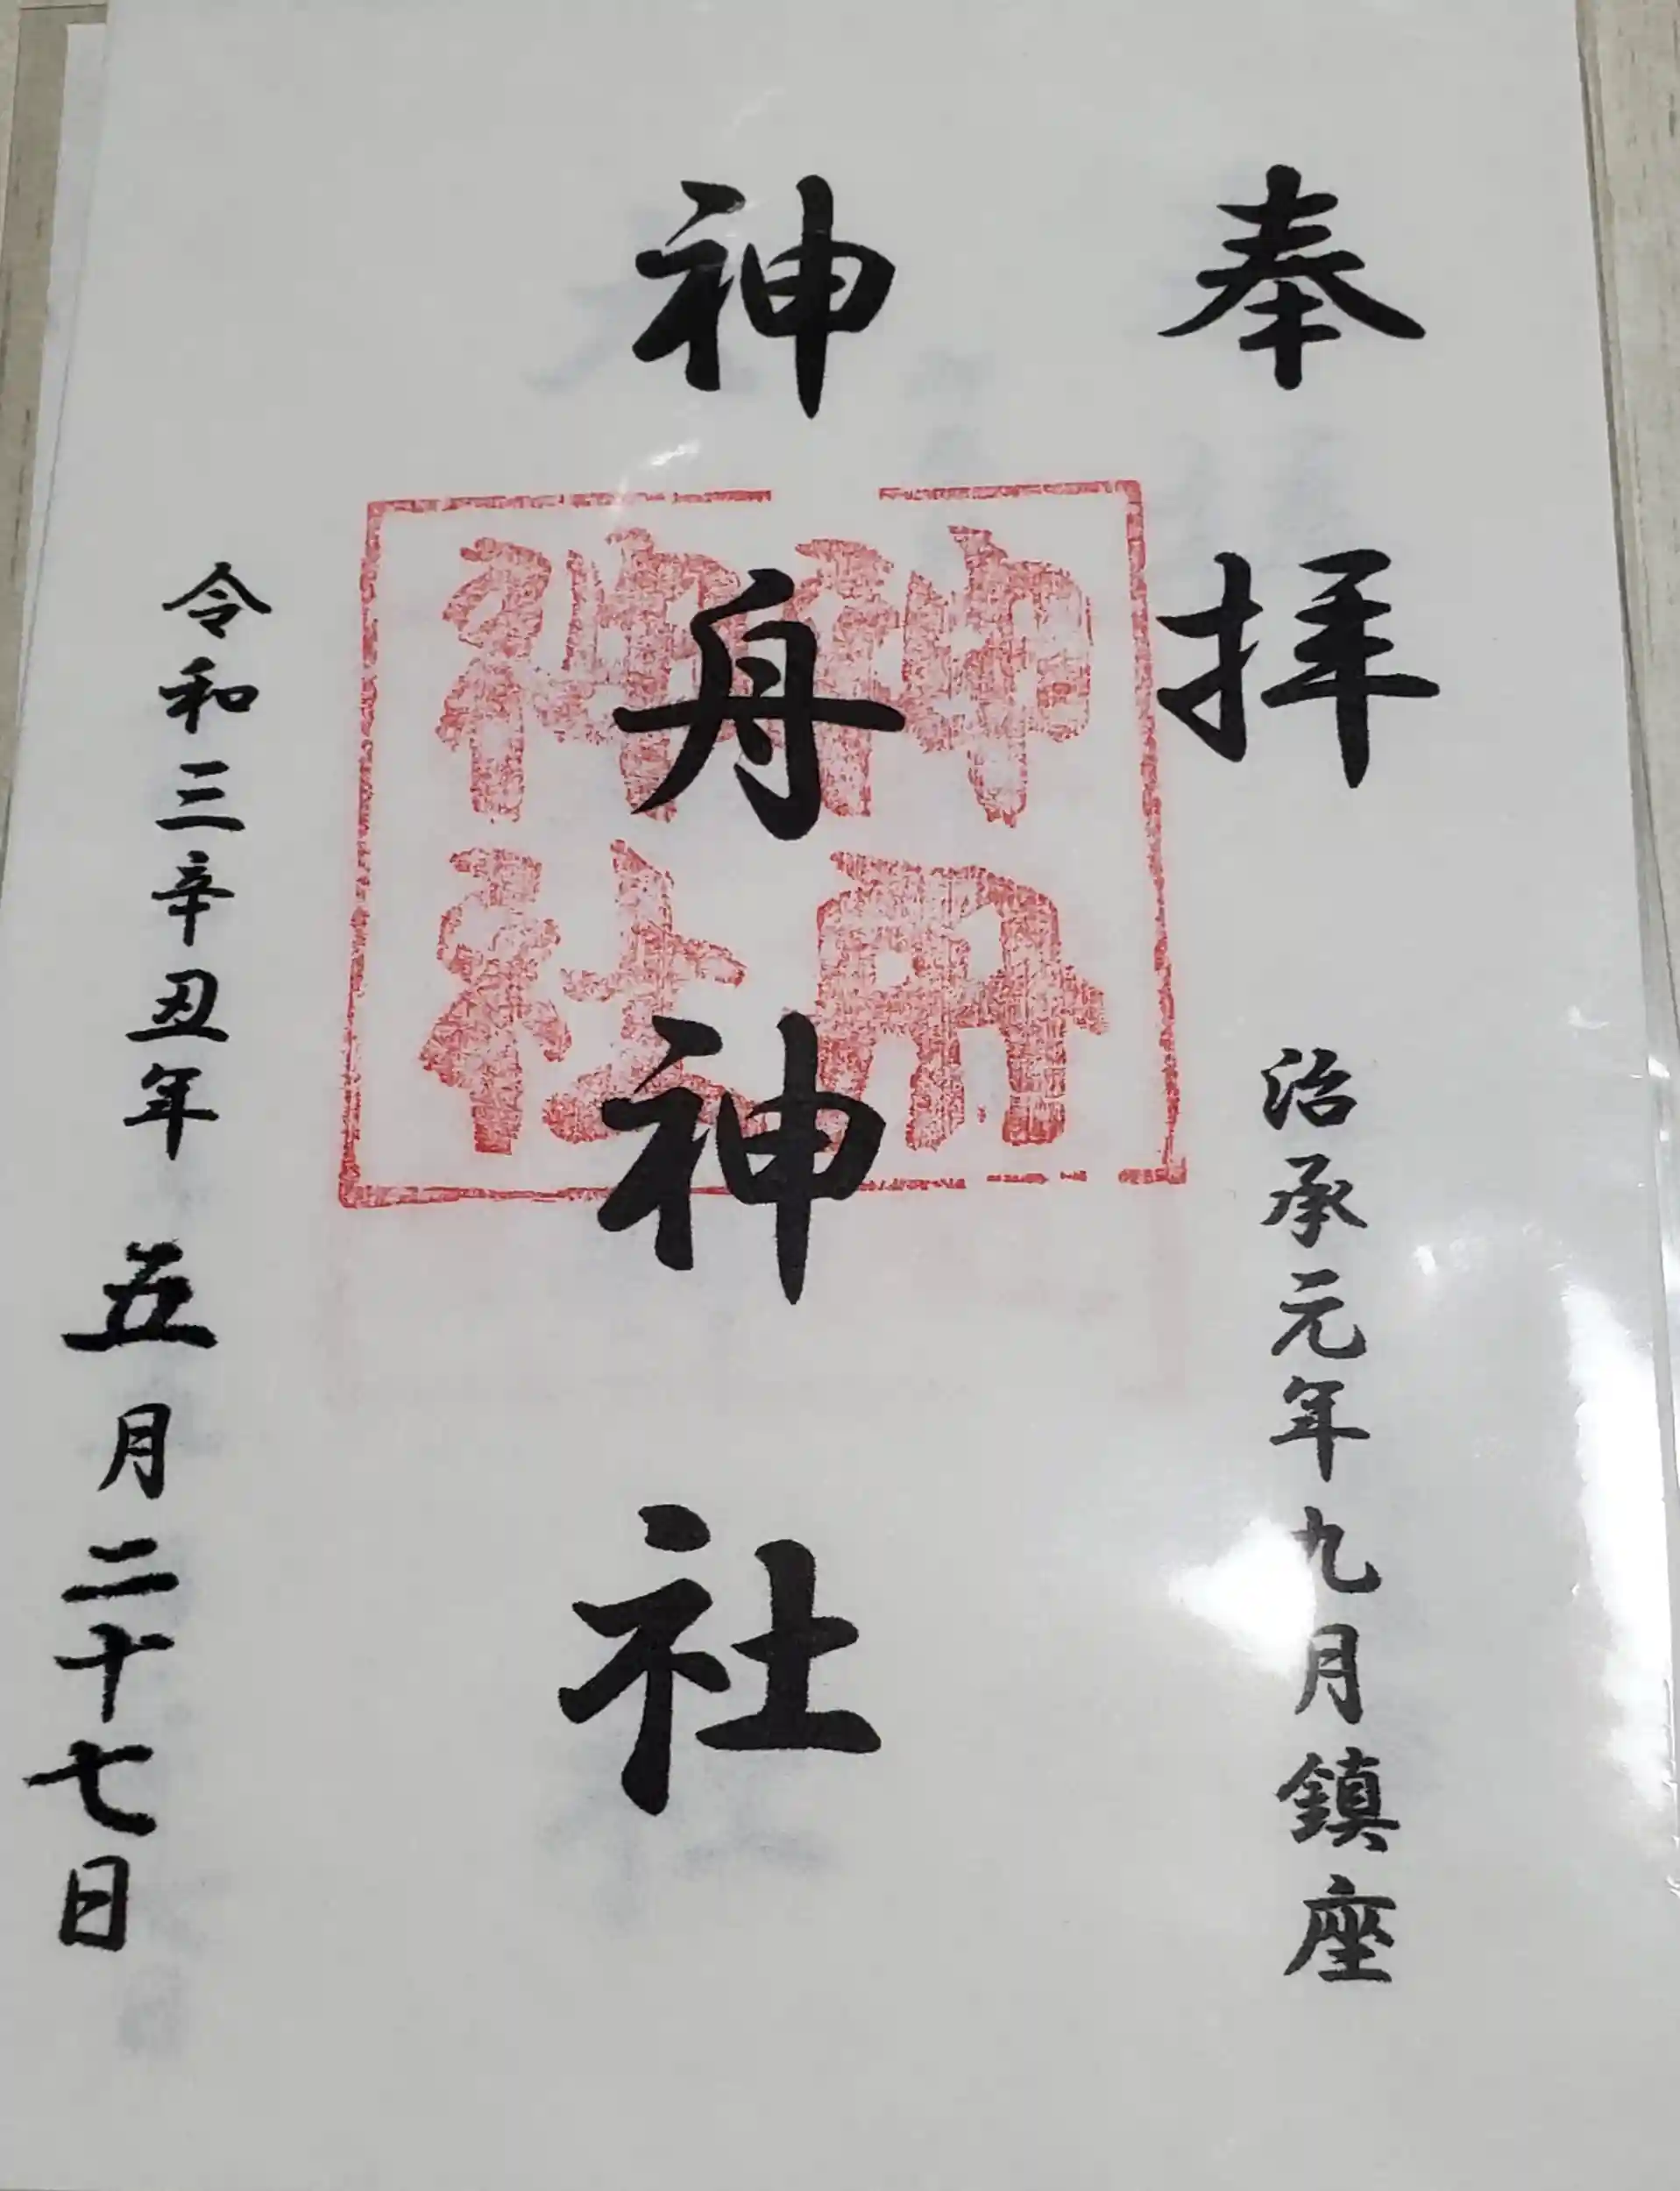 奉拝
治承元年九月鎮座
神舟神社
神舟
神社
令和三辛丑年五月二十七日